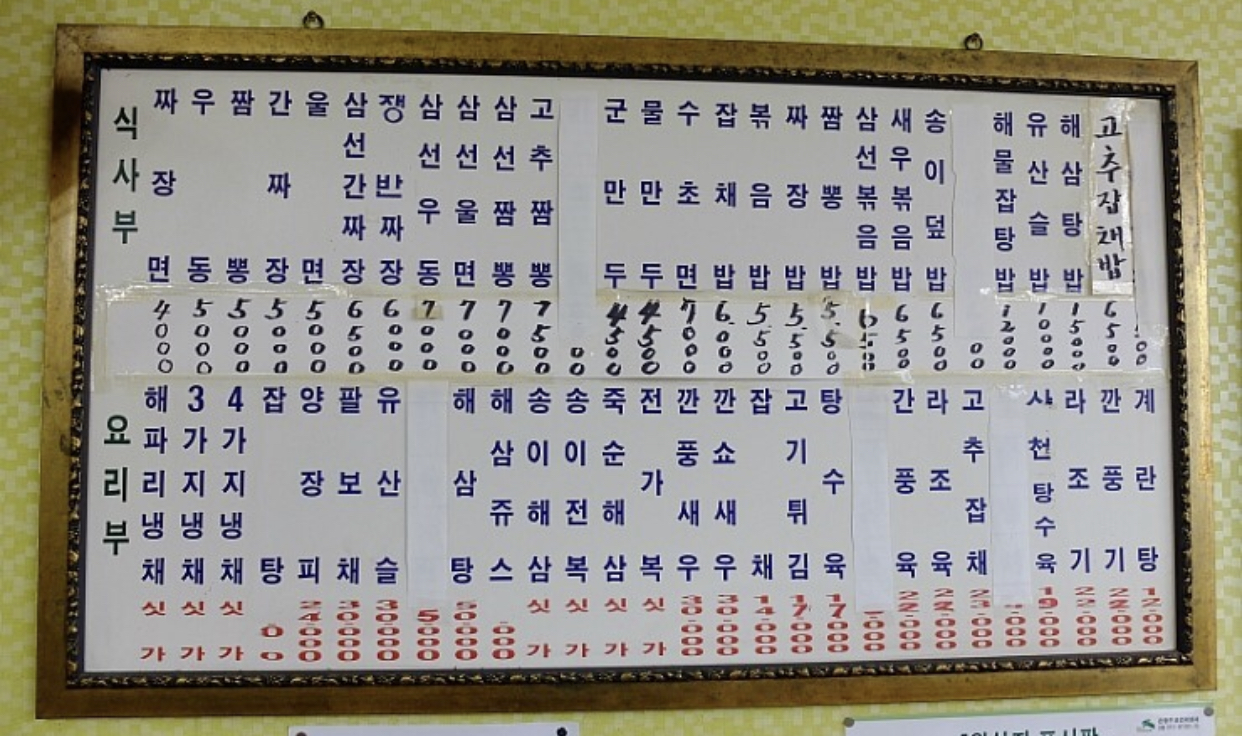 식사부
짜장면 4000
우동 5000
짬뽕 5000
간짜장 5000
울면 5000
삼선간짜장 6500
쟁반짜장 6000
삼선우동 7000
삼선울면 7000
삼선짬뽕 7000
고추짬뽕 7500
군만두 4500
물만두 4500
수초면 7000
잡채밥 6000
볶음밥 5500
짜장밥 5500
짬뽕밥 5500
삼선볶음밥 6500
새우볶음밥 6500
송이덮밥 6500
해물잡탕밥 12000
유산슬밥 10000
해삼탕밥 15000
고추잡채밥 6500
요리부
해파리냉채 싯가
3가지냉채 싯가
4가지냉채 싯가
잡탕
양장피 24000
팔보채 30000
유산슬 30000
해삼탕 50000
해삼쥬스
송이해삼 싯가
송이전복 싯가
죽순해삼 싯가
전가복 싯가
깐풍새우 30.000
깐쇼새우 30.000
잡채 14.000
고기튀김 17.000
탕수육 17.000
간풍육 22.000
라조육 22.000
고추잡채 23.000
사천탕수육 19.000
라조기 22.000
깐풍기 22.000
계란탕 12.000